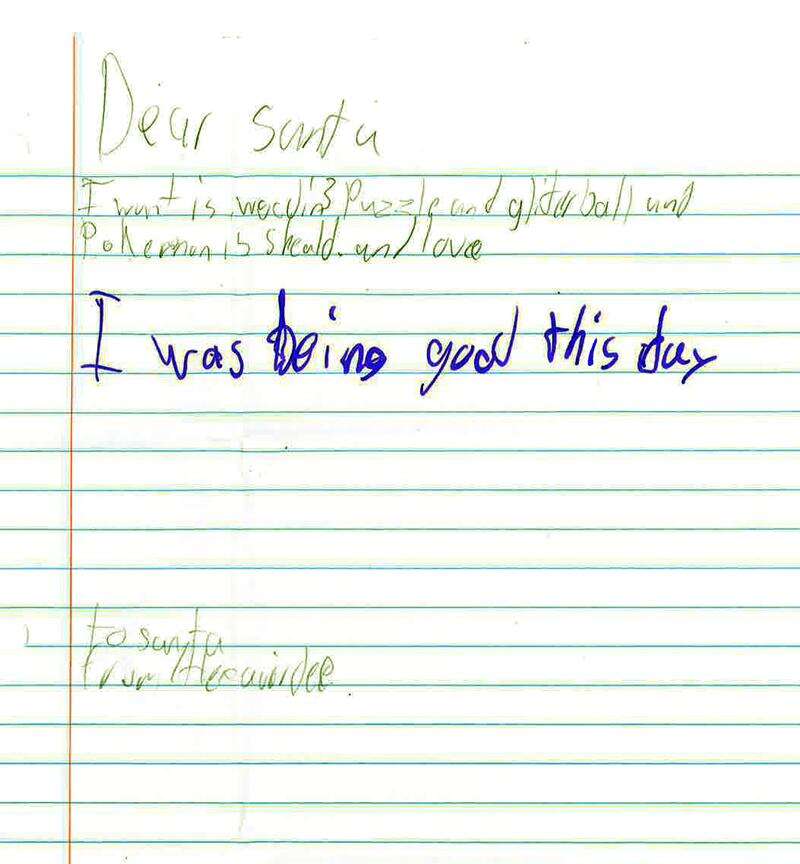 Dear santa
I want is puzzle and gliterball and
Pokemon is and love
I was being good this day
to santa
from